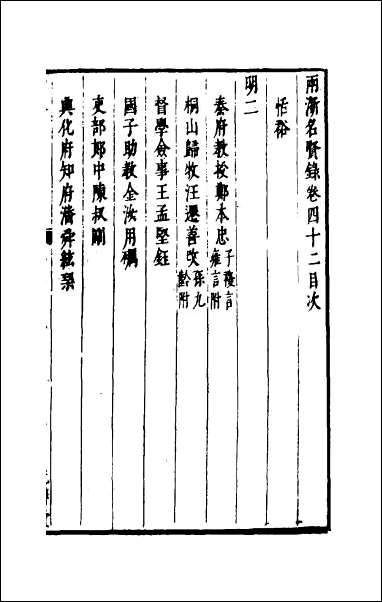 兩浙名賢錄卷四十二目次
恬裕
明二
秦府教授鄭本忠子復言雍言附
桐山歸牧汪遷善改孫九齡附
督學僉事王孟堅鈺
國子助教全汝用礪
吏部郎中陳叔剛
興化府知府潘舜絃琴